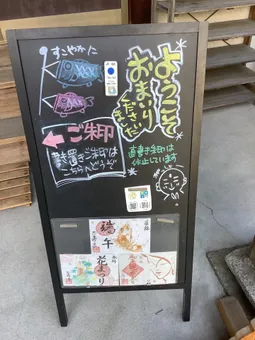 ようこそ
おまいり
くださいませ
すこやかに
ご朱印
書置きご朱印は
こちらへどうぞ
直書き朱印は
休止しています
端午
花まつり